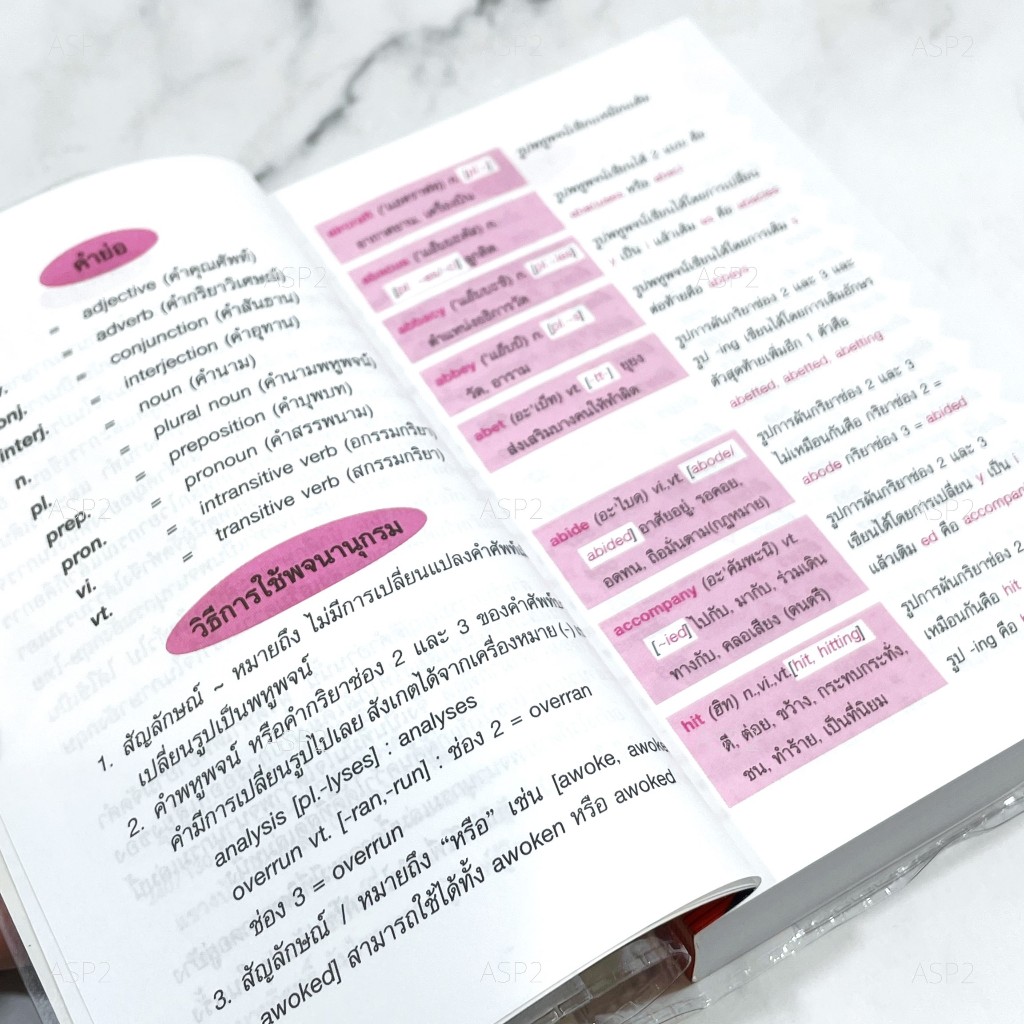 คำย่อ
= adjective (คำคุณศัพท์)
= adverb (คำกริยาวิเศษณ์)
onj. = conjunction (คำสันธาน)
interj. = interjection (คำอุทาน)
n. = noun (คำนาม)
pl. = plural noun (คำนามพหูพจน์)
prep. = preposition (คำบุพบท)
pron. = pronoun (คำสรรพนาม)
vi. = intransitive verb (อกรรมกริยา)
vt. = transitive verb (สกรรมกริยา)
วิธีการใช้พจนานุกรม
1. สัญลักษณ์ ~ หมายถึง ไม่มีการเปลี่ยนแปลงคำศัพท์
เปลี่ยนรูปเป็นพหูพจน์
2. คำพหูพจน์ หรือคำกริยาช่อง 2 และ 3 ของคำศัพท์
คำมีการเปลี่ยนรูปไปเลย สังเกตได้จากเครื่องหมาย (-)
analysis [pl.-lyses] : analyses
overrun vt. [-ran,-run] : ช่อง 2 = overran
ช่อง 3 = overrun
3. สัญลักษณ์ / หมายถึง “หรือ” เช่น [awoke, awoke
awoked] สามารถใช้ได้ทั้ง awoken หรือ awoked
aircraft ('แอคราฟท) n. [pl.~]
อากาศยาน, เครื่องบิน
ลูกคิด
abbacy ('แอ็บบะซี) n.
ตำแหน่งอธิการวัด
abbey ('แอ็บบี) n.
วัด, อาราม
abet (อะ'เบ็ท) vt. [-tt-] ยุยง
ส่งเสริมบางคนให้ทำผิด
abide (อะ'ไบด) vi.,vt. [abode/
abided] อาศัยอยู่, รอคอย,
อดทน, ถือมั่นตาม(กฎหมาย)
accompany (อะ'คัมพะนี) vt.
[-ied] ไปกับ, มากับ, ร่วมเดิน
ทางกับ, คลอเสียง (ดนตรี)
hit (ฮิท) n.,vi.,vt.[hit, hitting]
ตี, ต่อย, ขว้าง, กระทบกระทั่ง,
ชน, ทำร้าย, เป็นที่นิยม
รูปพหูพจน์เขียนเหมือนเดิม
รูปพหูพจน์เขียนได้ 2 แบบ คือ
หรือ
รูปพหูพจน์เขียนได้โดยการเปลี่ยน
y เป็น i แล้วเติม es คือ abbacies
รูปพหูพจน์เขียนได้โดยการเติม s
ต่อท้ายคือ abbeys
รูปการผันกริยาช่อง 2 และ 3 และ
รูป -ing เขียนได้โดยการเติมอักษร
ตัวสุดท้ายเพิ่มอีก 1 ตัวคือ
abetted, abetted, abetting
รูปการผันกริยาช่อง 2 และ 3
ไม่เหมือนกันคือ กริยาช่อง 2 =
abode กริยาช่อง 3 = abided
รูปการผันกริยาช่อง 2 และ 3
เขียนได้โดยการเปลี่ยน y เป็น i
แล้วเติม ed คือ accompan
รูปการผันกริยาช่อง 2
เหมือนกันคือ hit
รูป -ing คือ
ASP2
ASP2
ASP2
ASP2
ASP2
ASP2
ASP2
ASP2
ASP2
ASP2
ASP2
ASP2